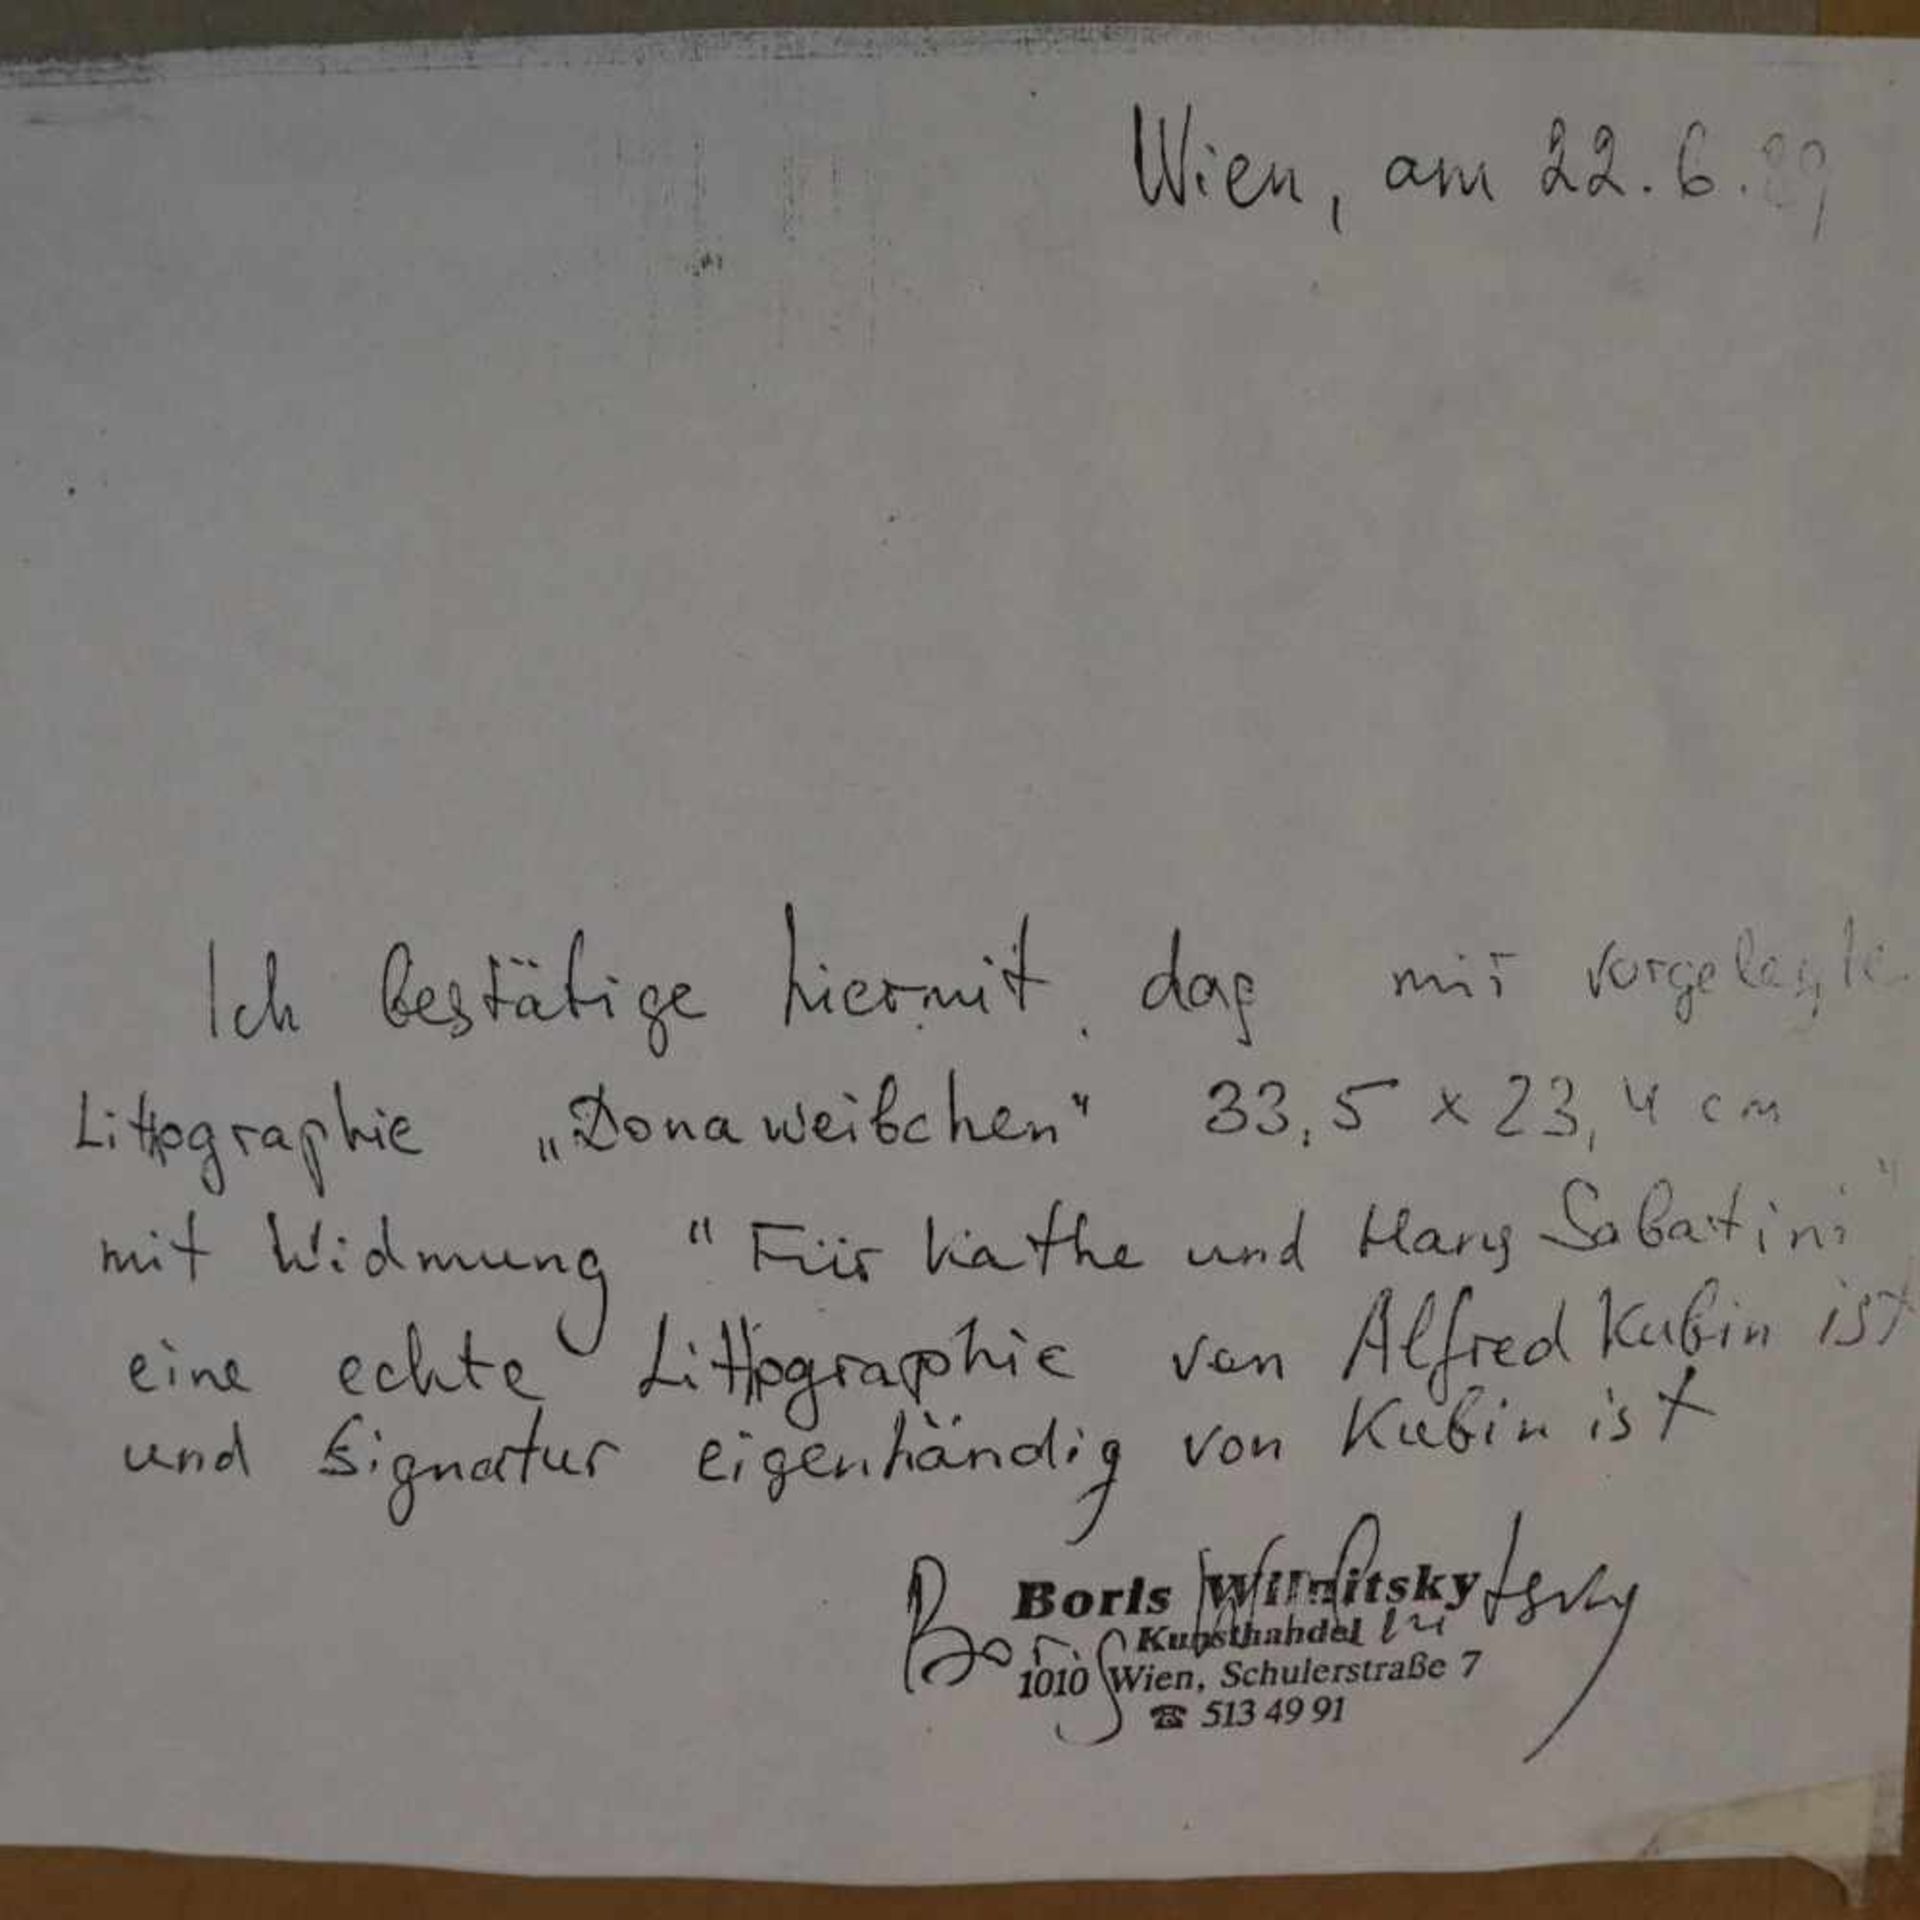 Wien, am 22.6.89
Ich bestätige hiermit, daß mir vorgelegte
Litthographie „Donaweibchen“ 33,5 x 23,4 cm
mit Widmung "Für Kathe und Hary Sabatini"
eine echte Litthographie von Alfred Kubin ist
und Signatur eigenhändig von Kubin ist
Boris Wilnitsky
Boris Wilnitsky
Kunsthandel
1010 Wien, Schulerstraße 7
☎ 513 49 91